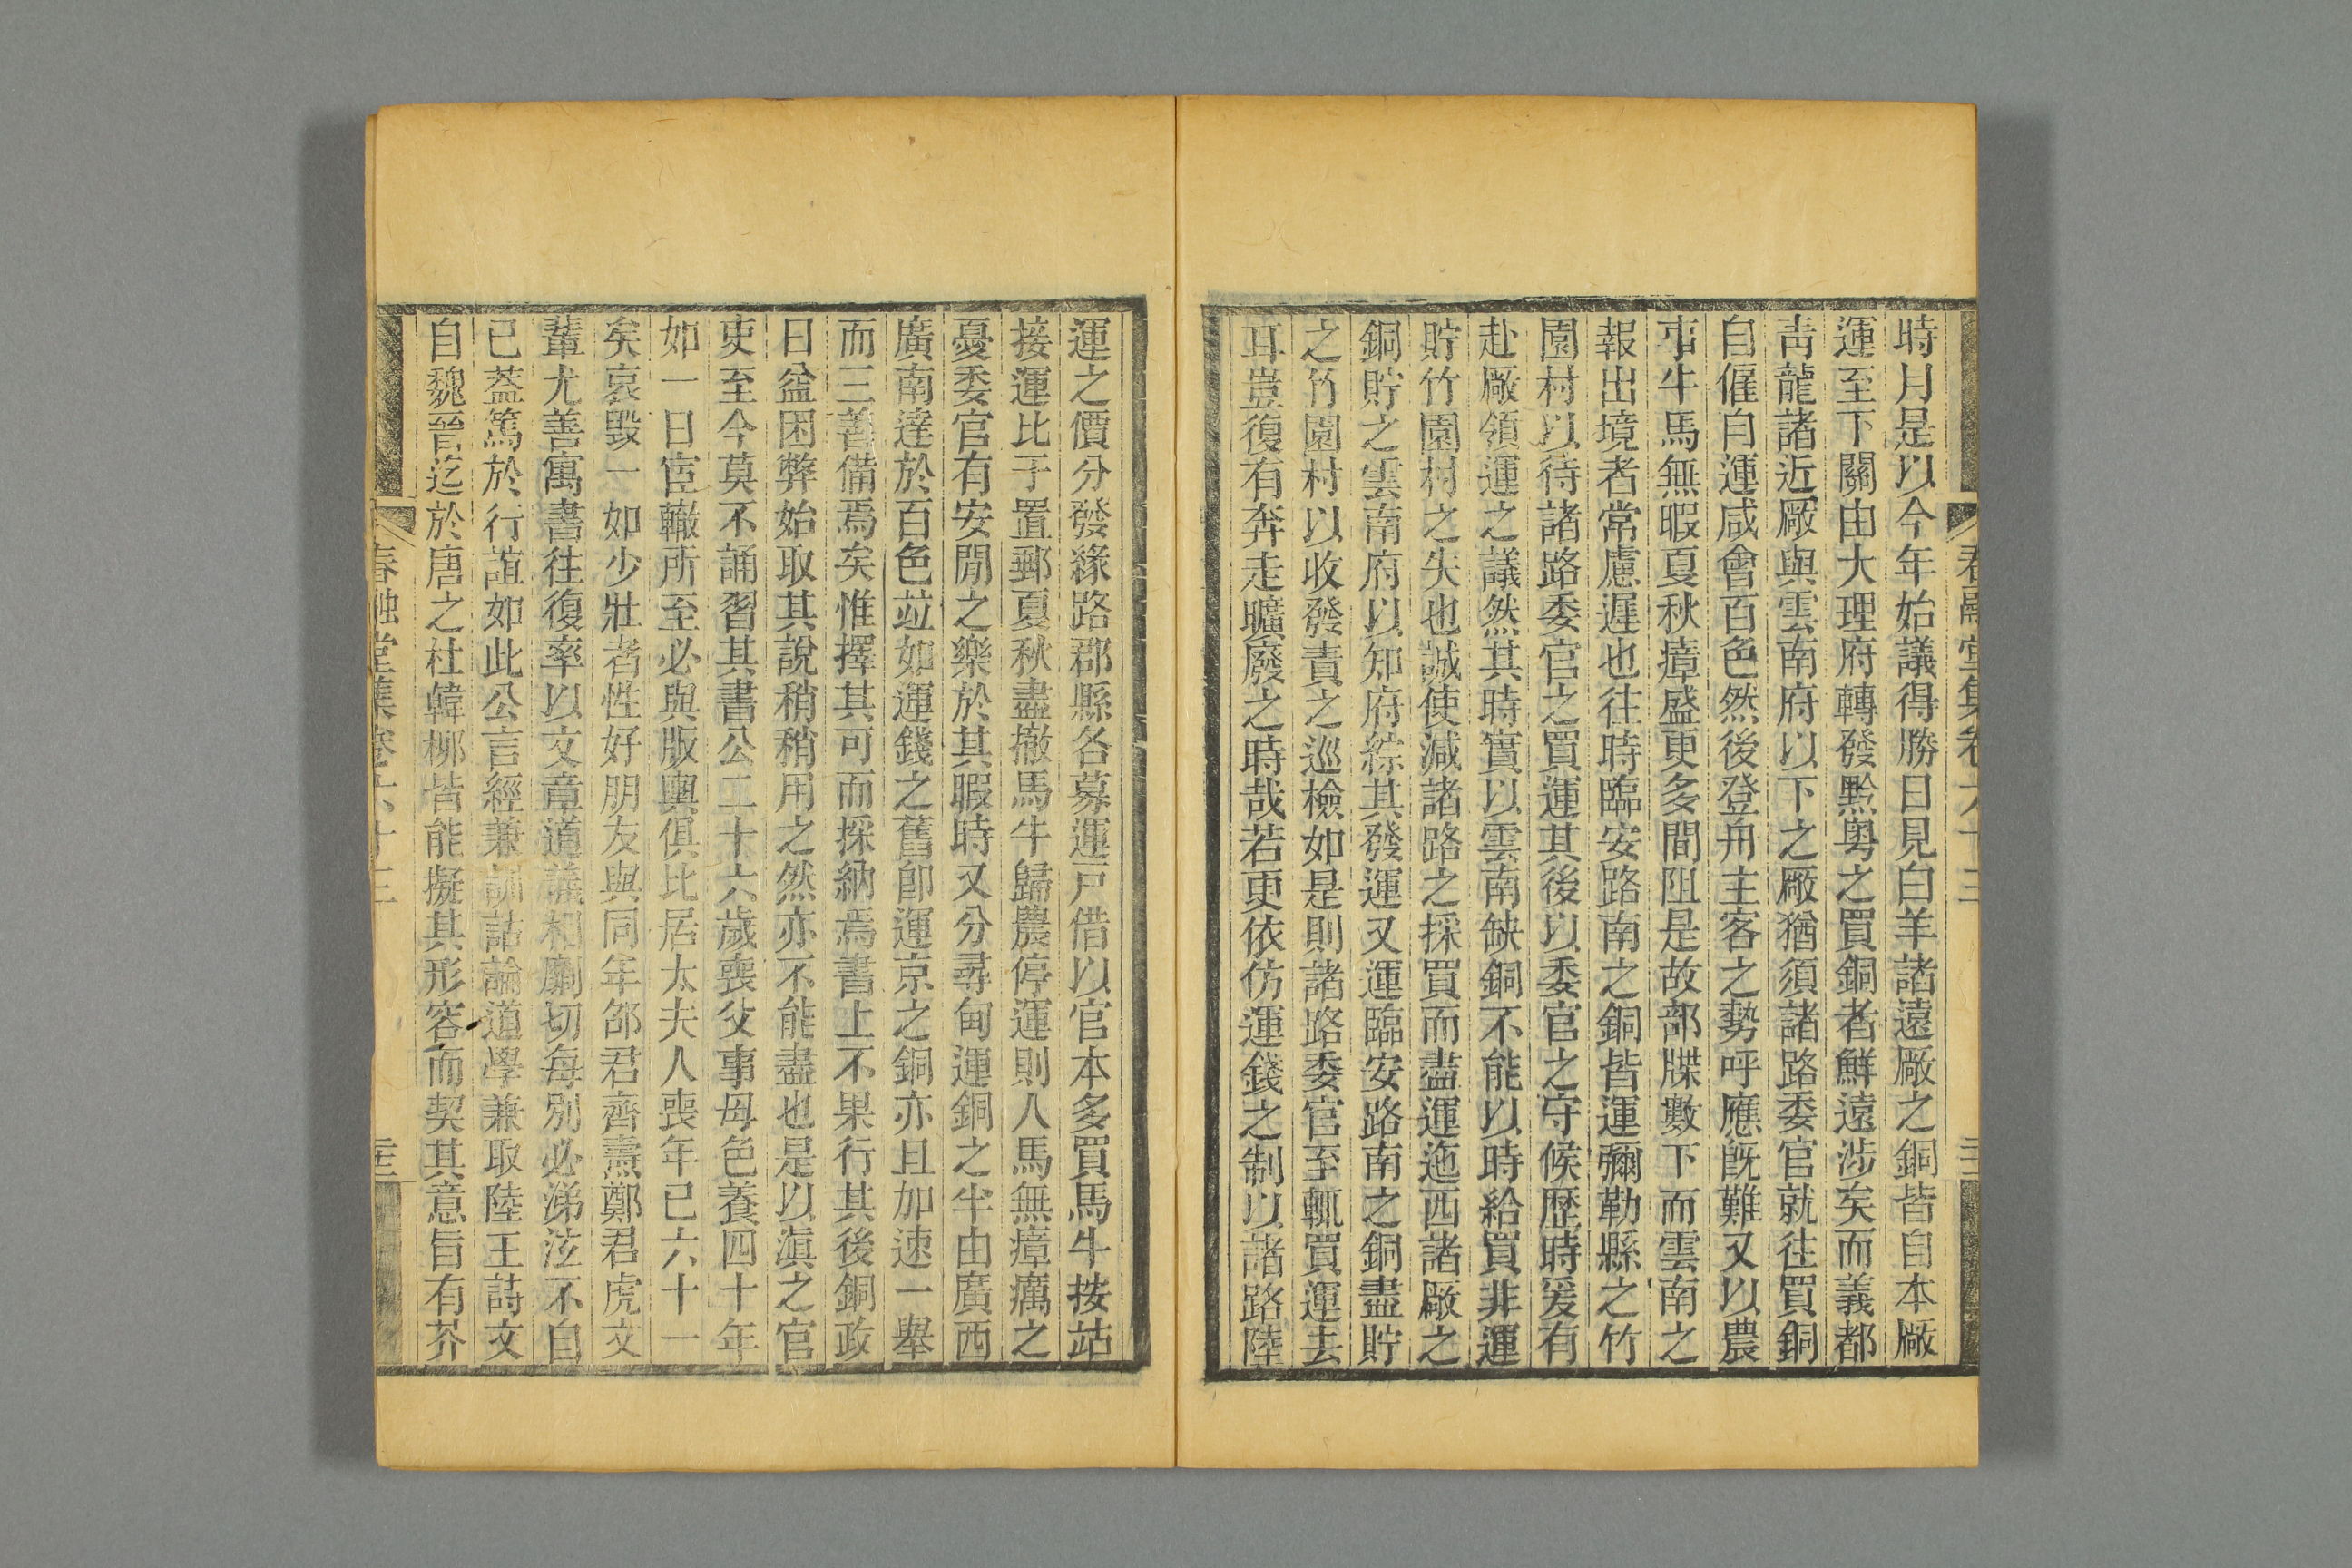 時月是以今年始議得勝日見白羊諸遠厰之銅皆自本厰
運至下關由大理府轉發黔粤之買銅者鮮遠涉矣而義都
靑龍諸近厰與雲南府以下之厰猶須諸路委官就往買銅
自僱自運咸會百色然後登舟主客之勢呼應旣難又以農
事牛馬無暇夏秋瘴盛更多間阻是故部牒數下而雲南之
報出境者常慮遲也往時臨安路南之銅皆運彌勒縣之竹
園村以待諸路委官之買運其後以委官之守候歷時爰有
赴厰領運之議然其時實以雲南缺銅不能以時給買非運
貯竹園村之失也誠使減諸路之採買而盡運迤西諸厰之
銅貯之雲南府以知府綜其發運又運臨安路南之銅盡貯
之竹園村以收發責之巡檢如是則諸路委官至輒買運去
耳豈復有奔走曠廢之時哉若更依仿運錢之制以諸路陸
運之價分發緣路郡縣各募運戸借以官本多買馬牛按站
接運比于置郵夏秋盡撤馬牛歸農停運則人馬無瘴癘之
憂委官有安閒之樂於其暇時又分尋甸運銅之半由廣西
廣南達於百色竝如運錢之舊卽運京之銅亦且加速一舉
而三善備焉矣惟擇其可而採納焉書上不果行其後銅政
日益困弊始取其說稍稍用之然亦不能盡也是以滇之官
吏至今莫不誦習其書公二十六歲喪父事母色養四十年
如一日宦轍所至必與版輿俱比居太夫人喪年已六十一
矣哀毀一如少壯者性好朋友與同年邵君齊燾鄭君虎文
輩尤善寓書往復率以文章道義相劘切每別必涕泣不自
已蓋篤於行誼如此公言經兼訓詁論道學兼取陸王詩文
自魏晉迄於唐之杜韓柳皆能擬其形容而契其意旨有芥
春融堂集卷六十三